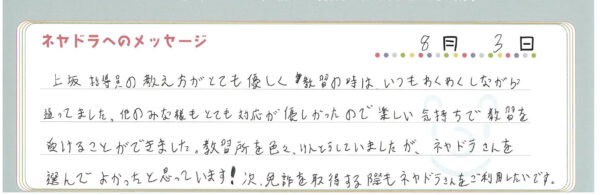 ネヤドラへのメッセージ
8月 3日
上坂指導員の教え方がとても優しく教習の時はいつもわくわくしながら
通ってました、他のみな様もとても対応が優しかったので楽しい気持ちで教習を
受けることができました。教習所を色々、けんとうしていましたが、ネヤドラさんを
選んでよかったと思っています!次、免許を取得する際もネヤドラさんをご利用したいです。